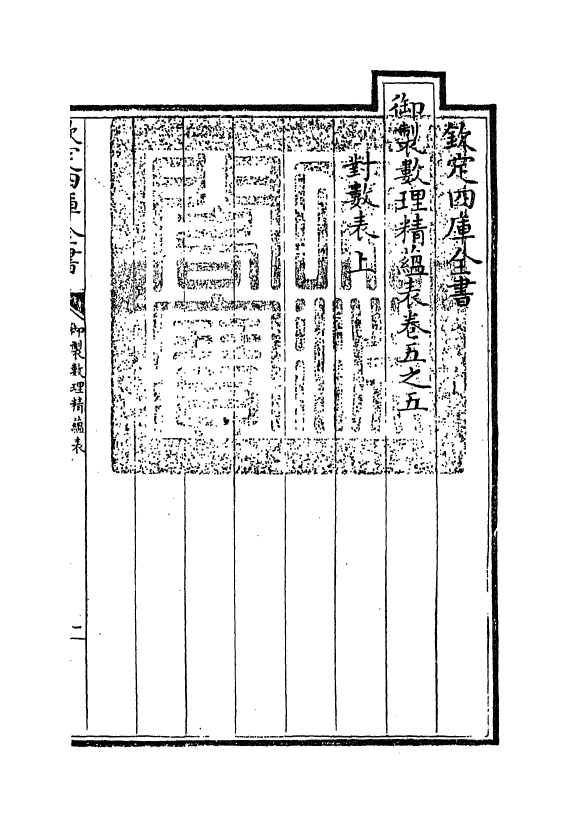 欽定四庫全書
御製數理精蘊表卷五之五
對數表上
欽定四庫全書
御製數理精蘊表
二